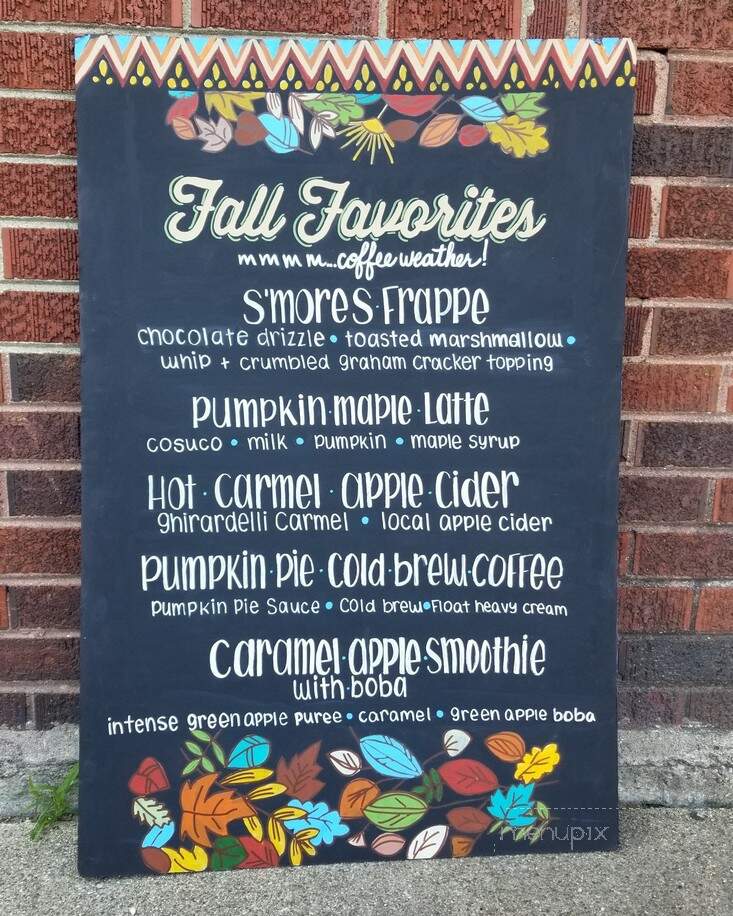 Fall Favorites
mmmm...coffee weather!
S'mores·Frappe
chocolate drizzle • toasted marshmallow •
whip + crumbled graham cracker topping
pumpkin·maple·Latte
cosuco • milk • pumpkin • maple syrup
Hot·Carmel·apple·Cider
ghirardelli Carmel • local apple cider
pumpkin·Pie·Cold·brew·coffee
Pumpkin Pie Sauce • Cold brew • Float heavy cream
Caramel·apple·Smoothie
with·boba
intense green apple puree • caramel • green apple boba
menupix